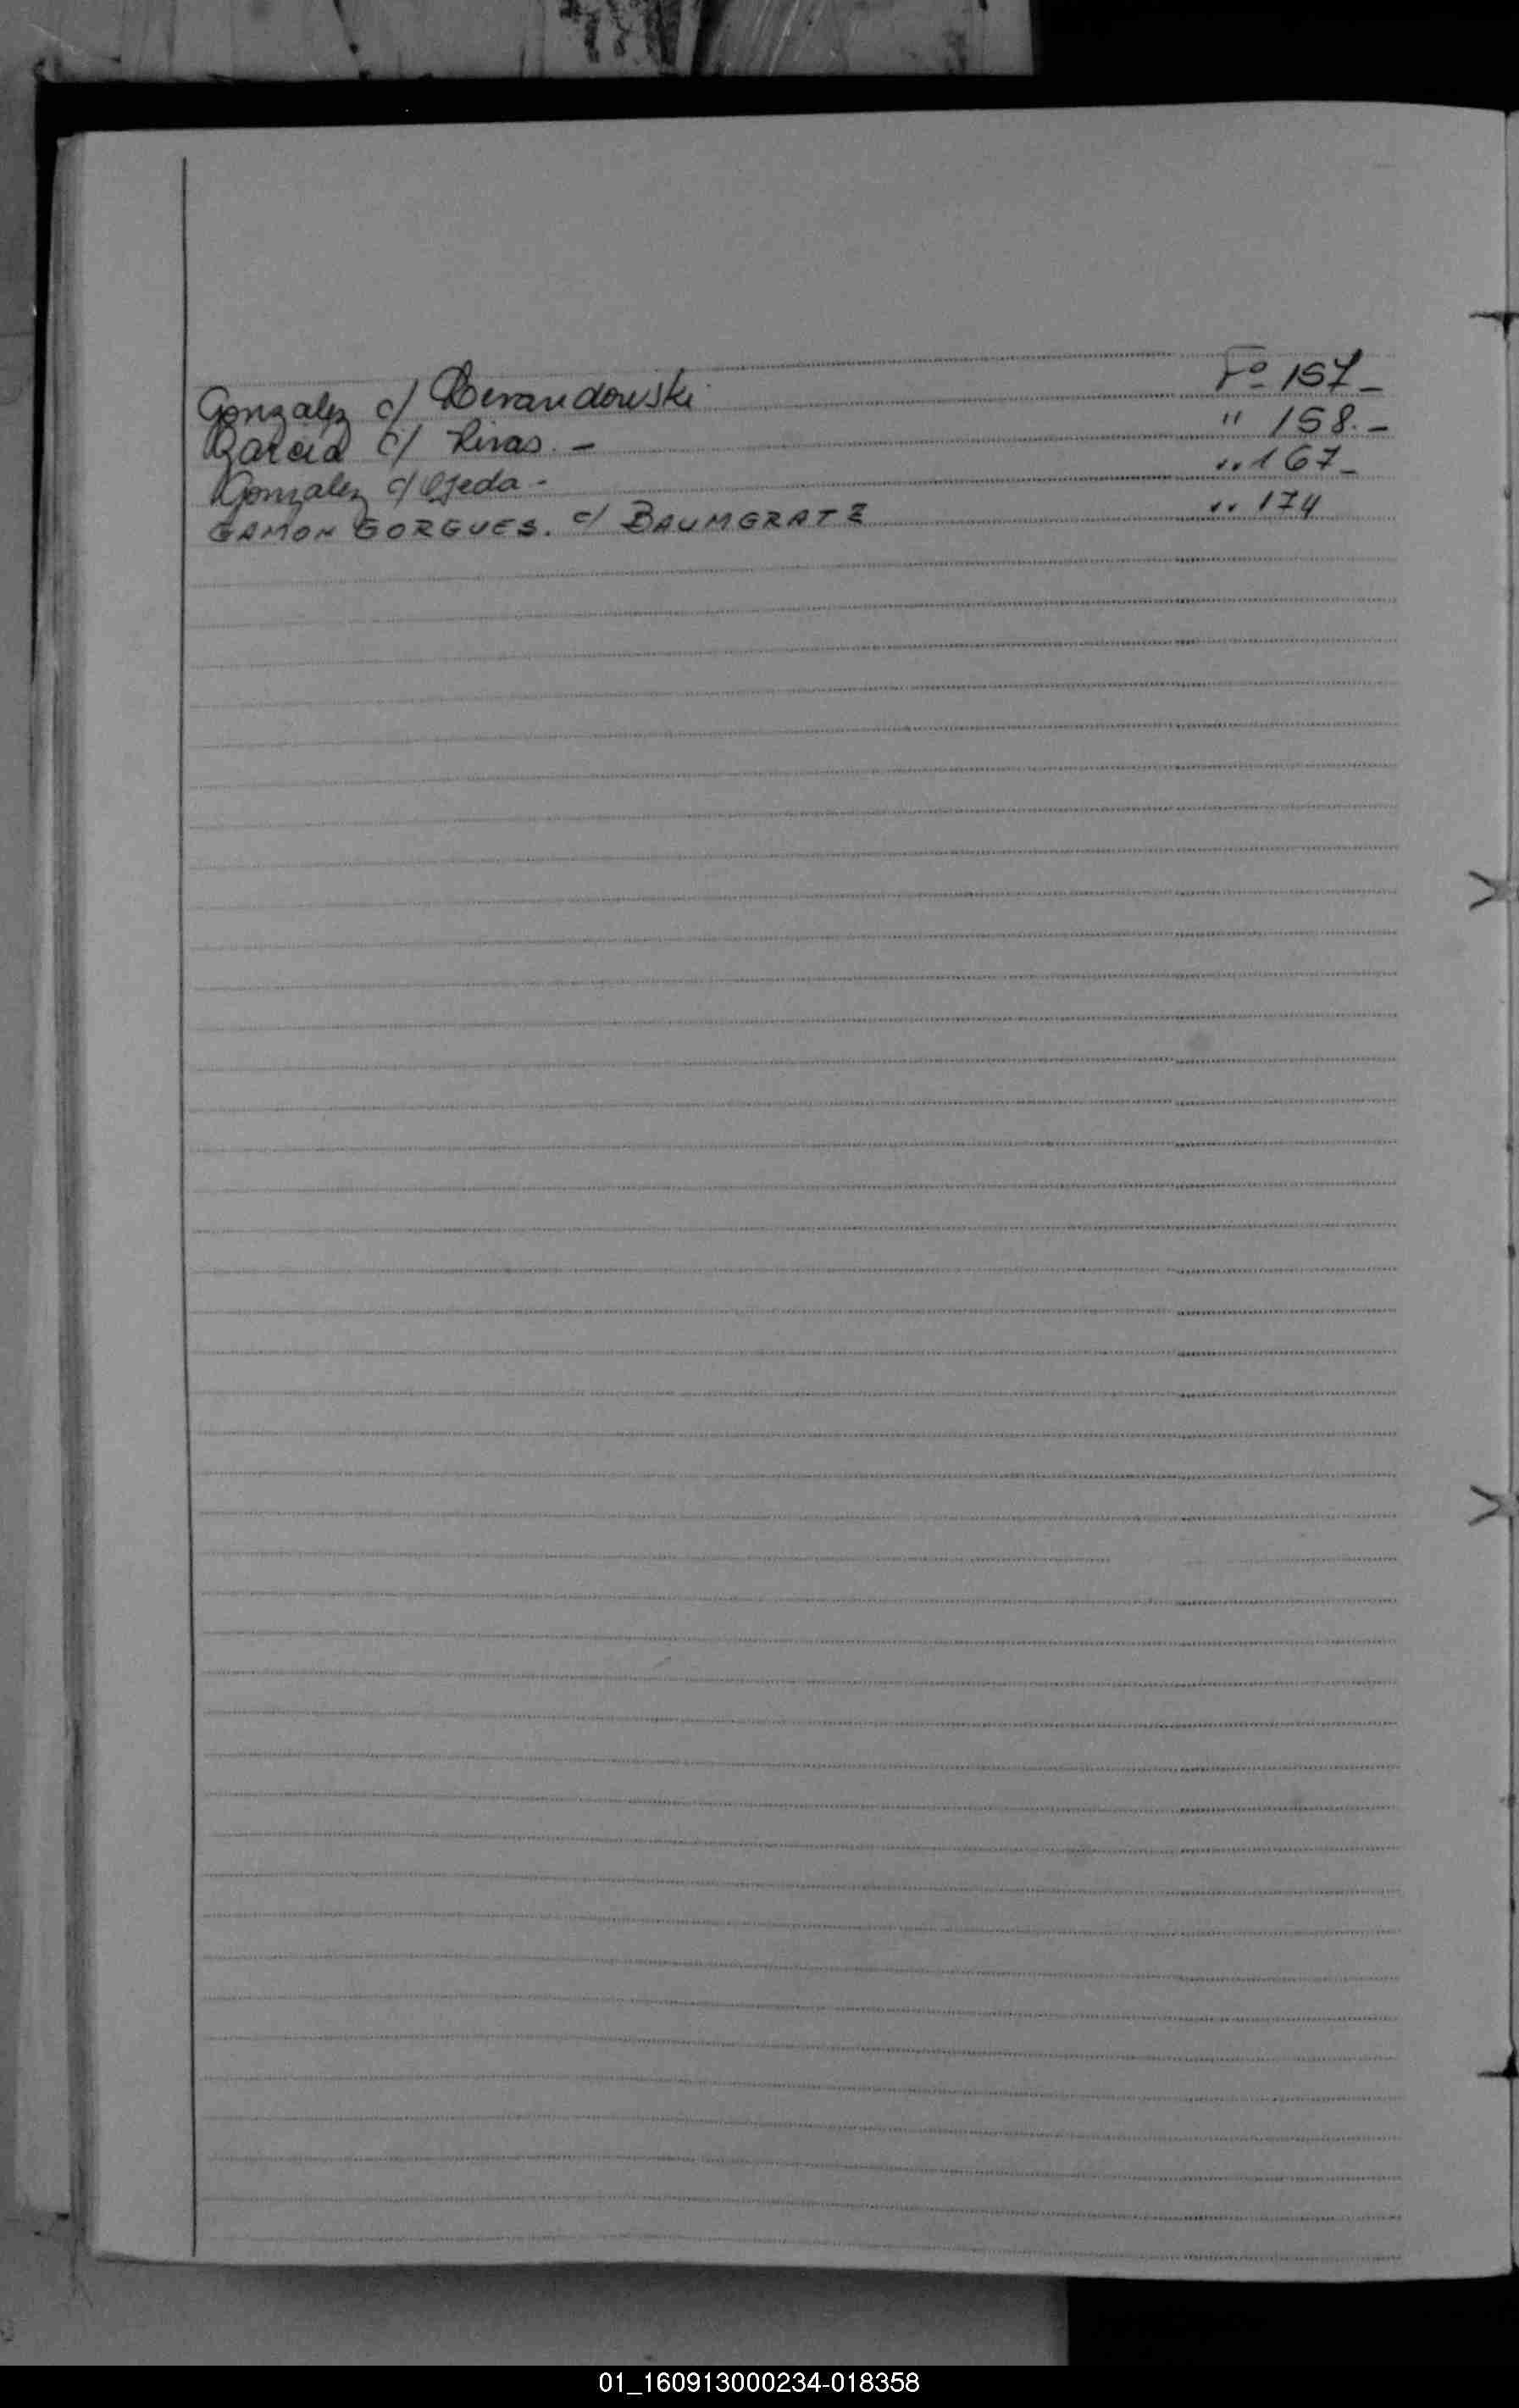 Gonzalez c/ Lewandowski Fº 157-
Garcia c/ Rivas. - " 158.-
Gonzalez c/ Ojeda - " 167-
GAMON GORGUES. c/ BAUMGRATZ " 174
01_160913000234-018358